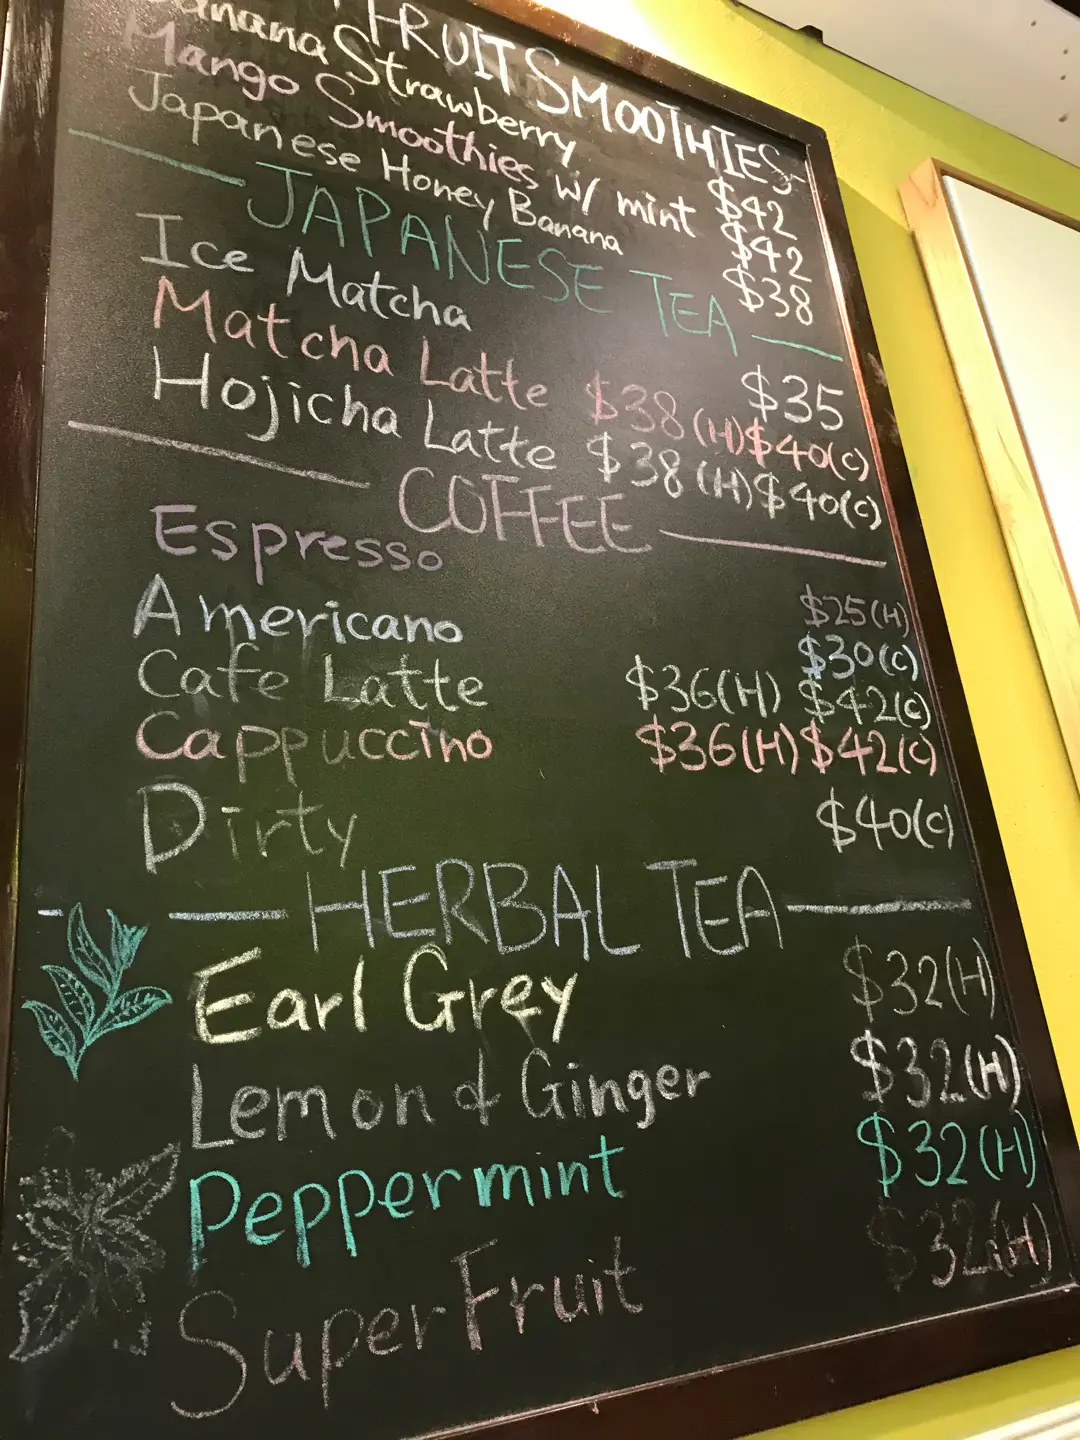 FRUIT SMOOTHIES
Banana Strawberry $42
Mango Smoothies w/ mint $42
Japanese Honey Banana $38
JAPANESE TEA
Ice Matcha $35
Matcha Latte $38(H) $40(C)
Hojicha Latte $38(H) $40(C)
COFFEE
Espresso $25(H)
Americano $30(C)
Cafe Latte $36(H) $42(C)
Cappuccino $36(H) $42(C)
Dirty $40(C)
HERBAL TEA
Earl Grey $32(H)
Lemon & Ginger $32(H)
Peppermint $32(H)
Super Fruit $32(H)